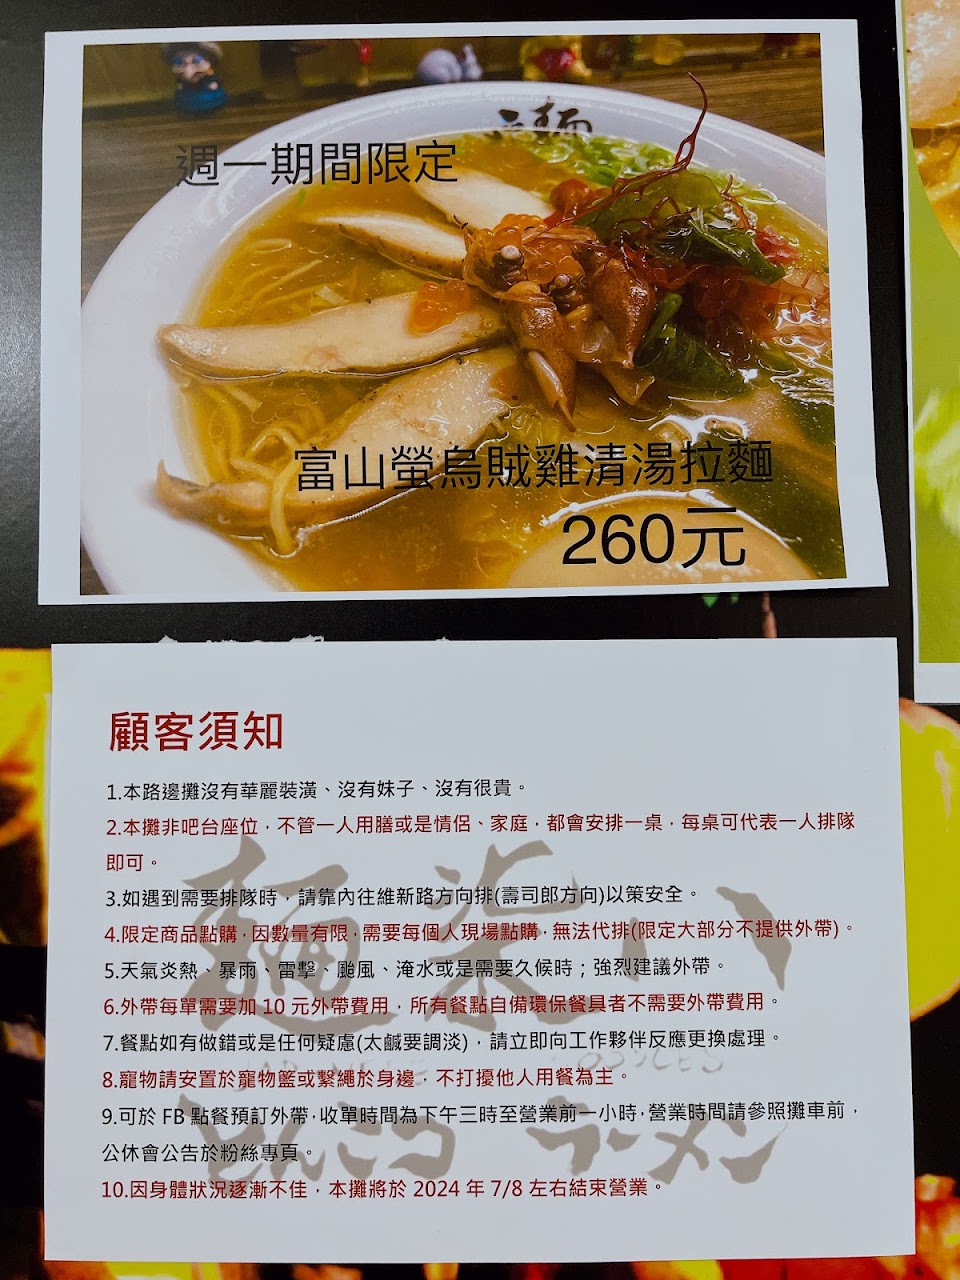 拉麵
週一期間限定
富山螢烏賊雞清湯拉麵
260元
顧客須知
1.本路邊攤沒有華麗裝潢、沒有妹子、沒有很貴。
2.本攤非吧台座位，不管一人用膳或是情侶、家庭，都會安排一桌，每桌可代表一人排隊
即可。
3.如遇到需要排隊時，請靠內往維新路方向排(壽司郎方向)以策安全。
4.限定商品點購，因數量有限，需要每個人現場點購，無法代排(限定大部分不提供外帶)。
5.天氣炎熱、暴雨、雷擊、颱風、淹水或是需要久候時；強烈建議外帶。
6.外帶每單需要加 10 元外帶費用，所有餐點自備環保餐具者不需要外帶費用。
7.餐點如有做錯或是任何疑慮(太鹹要調淡)，請立即向工作夥伴反應更換處理。
8.寵物請安置於寵物籃或繫繩於身邊，不打擾他人用餐為主。
9.可於 FB 點餐預訂外帶，收單時間為下午三時至營業前一小時，營業時間請參照攤車前，
公休會公告於粉絲專頁。
10.因身體狀況逐漸不佳，本攤將於 2024 年 7/8 左右結束營業。
とんこつ ラーメン